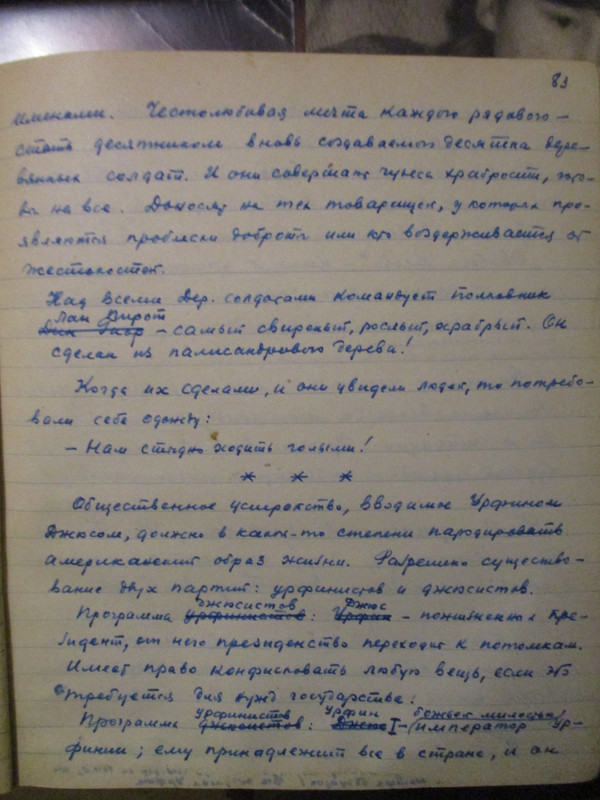 83
именами. Честолюбивая мечта каждого рядового –
стать десятником вновь создаваемого десятка дере-
вянных солдат. И они совершают чудеса храбрости, что-
бы на все. Доносят на тех товарищей, у которых про-
являются проблески доброты или кто воздерживается от
жестокостей.
Над всеми дер. солдатами командует полковник
Лан Пирот
– самый свирепый, рослый, храбрый. Он
сделан из палисандрового дерева!
Когда их сделали, и они увидели людей, то потребо-
вали себе одежду:
– Нам стыдно ходить голыми!
* * *
Общественное устройство, вводимое Урфином
Джюсом, должно в какой-то степени пародировать
американский образ жизни. Разрешено существо-
вание двух партий: урфинистов и джюсистов.
джюсистов Джюс
Программа урфинистов: Урфин – пожизненный пре-
зидент, от него президенство переходит к потомкам.
Имеет право конфисковать любую вещь, если это
требуется для нужд государства.
урфинистов Урфин божьей милостью
Программа джюсистов: Джюс I – император Ур-
финии; ему принадлежит все в стране, и он